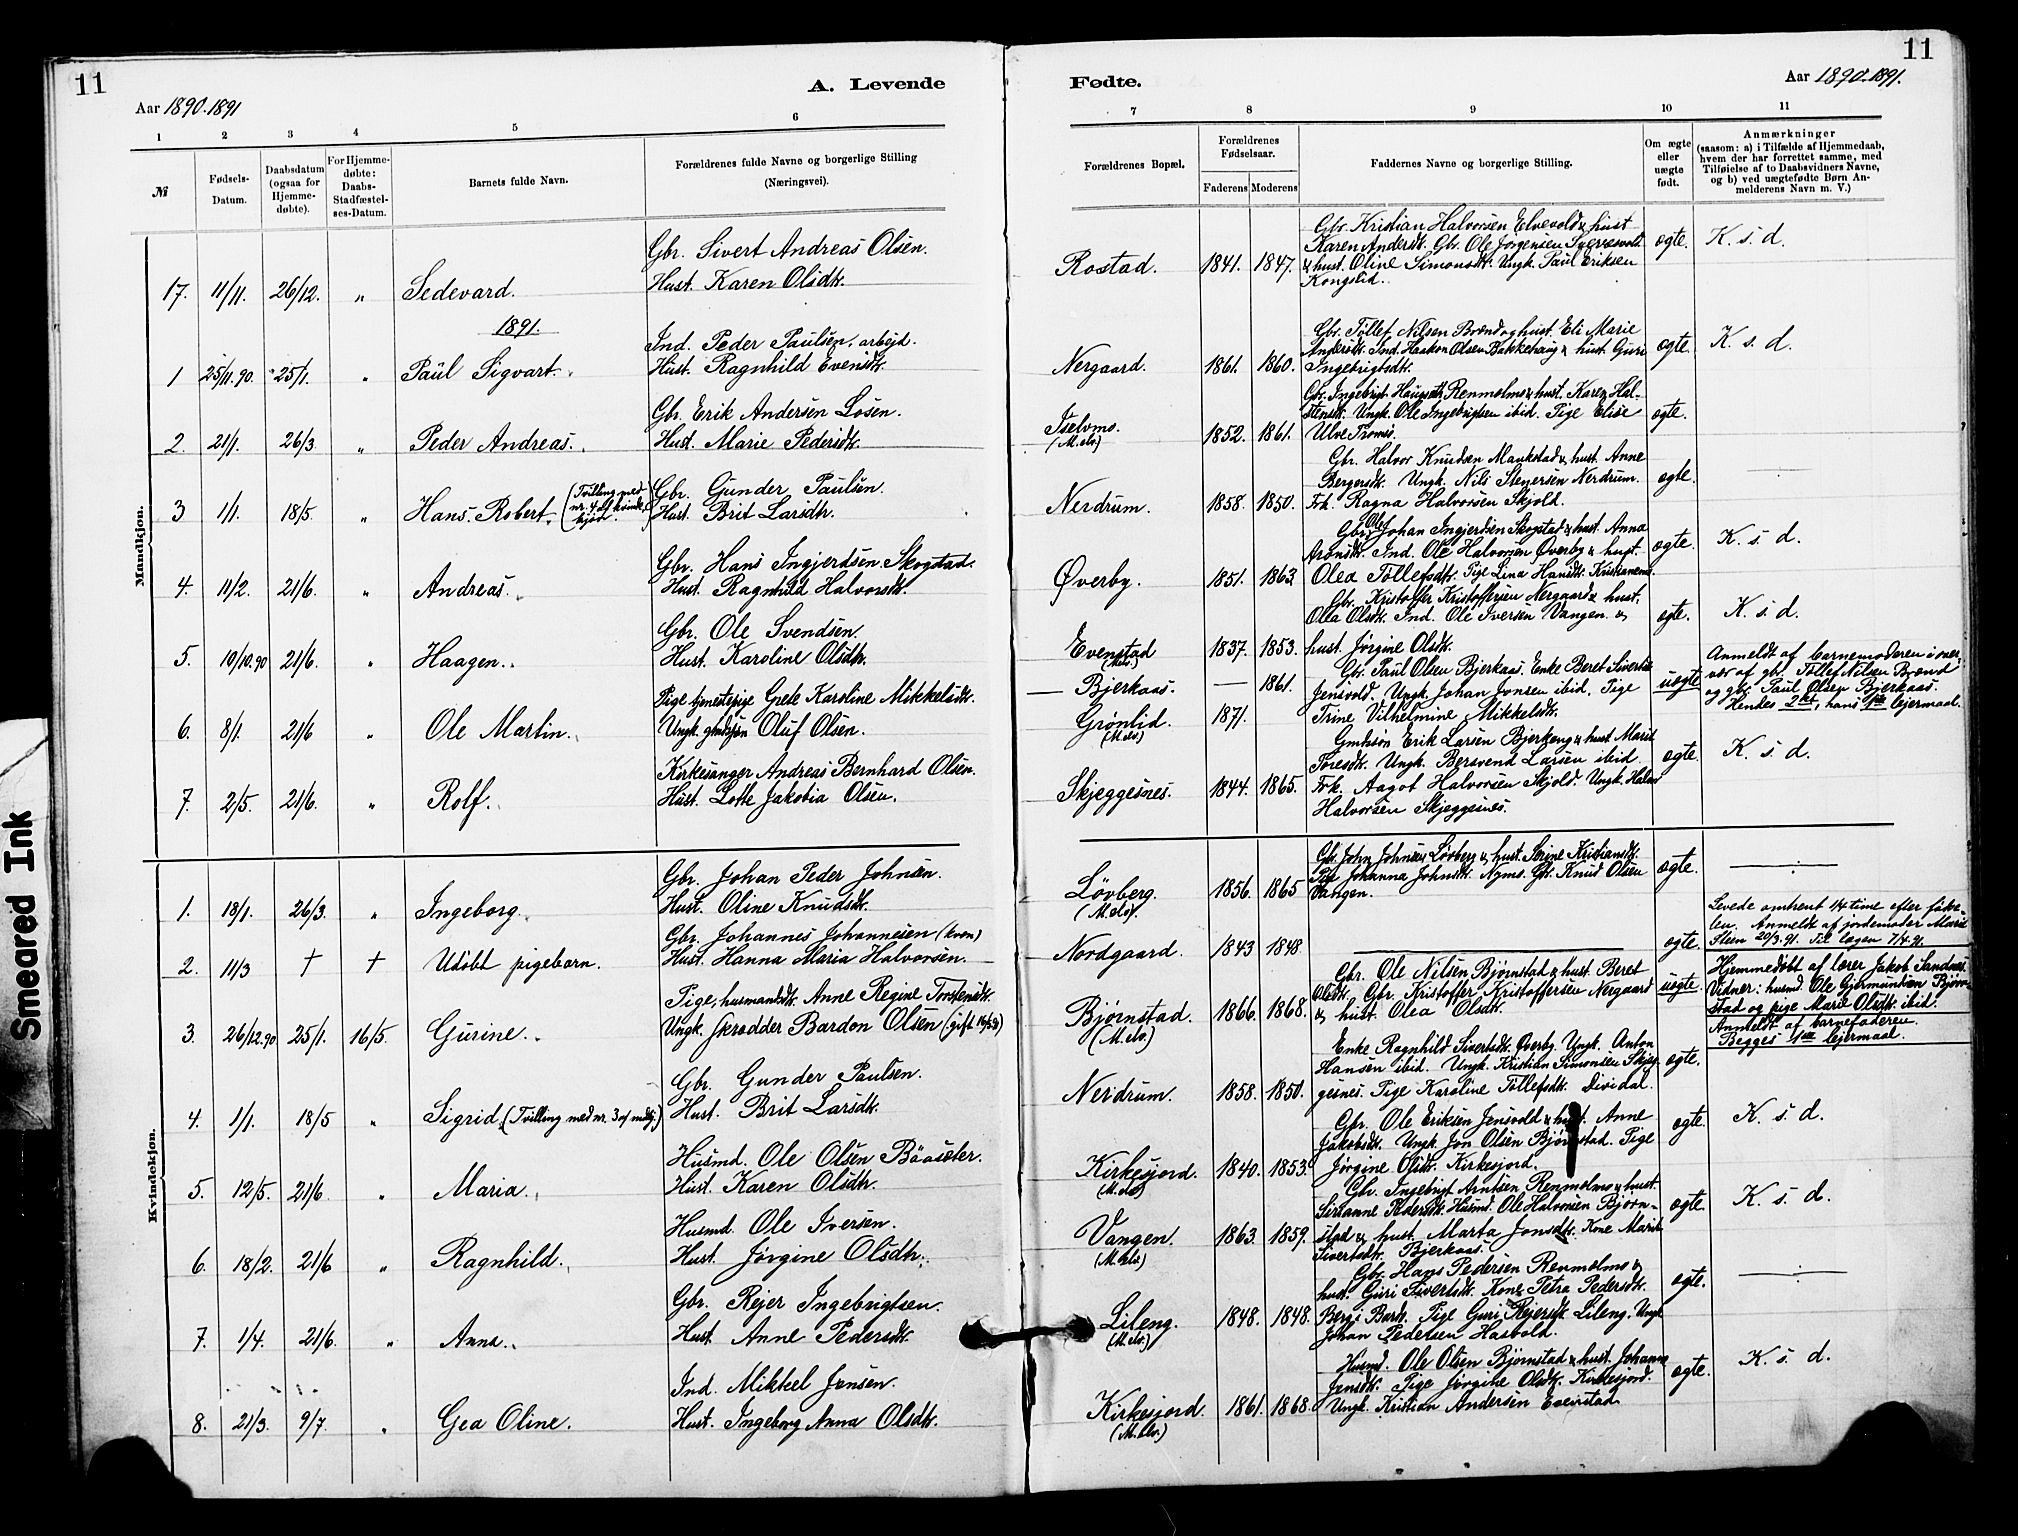 11
Aar 1890-1891
A. Levende
1 2 3 4 5 6
№
Fødsels-Datum.
Daabsdatum (ogsaa for Hjemme-døbte).
For Hjemme-døbte: Daabs-Stadfæstel-ses-Datum.
Barnets fulde Navn.
Forældrenes fulde Navne og borgerlige Stilling
(Næringsvei).
Mandkjøn.
Gbr. Sivert Andreas Olsen.
17. 11/11. 26/12. " Sedevard. Hust. Karen Olsdtr.
1891.
Ind. Peder Paulsen, arbeid.
1 25/11.90. 25/1. " Paul Sigvart. Hust. Ragnhild Evensdtr.
Gbr. Erik Andersen Losen.
2. 21/1. 26/3. " Peder Andreas. Hust. Marie Pedersdtr.
Gbr. Gunder Paulsen.
3 1/1. 18/5. " Hans Robert. (Tvilling med nr. 4 af kvindekjøn. Hust. Brit Larsdtr.
Gbr. Hans Ingjerdsen Skogstad.
4. 11/2. 21/6. " Andreas. Hust. Ragnhild Halvorsdtr.
Gbr. Ole Svendsen.
5. 10/10.90 21/6. " Haagen. Hust. Karoline Olsdtr.
Pige tjenestepige Grete Karoline Mikkelsdtr.
6. 8/1. 21/6 " Ole Martin. Ungk. Oluf Olsen.
Kirkesanger Andreas Bernhard Olsen.
7. 2/5. 21/6. " Rolf. Hust. Lotte Jakobia Olsen.
Kvindekjøn.
Gbr. Johan Peder Johnsen.
1. 18/1. 26/3. " Ingeborg. Hust. Oline Knudsdtr.
Gbr. Johannes Johannesen (kvæn)
2. 11/3 † † Udøbt pigebarn. Hust. Hanna Maria Halvorsen.
Pige, husmandsdtr. Anne Regine Torstensdtr.
3. 26/12.90 25/1. 16/5. Gurine. Ungk. Bardon Olsen
Gbr. Gunder Paulsen.
4. 1/1. 18/5 " Sigrid. (Tvilling med nr. 3 af mdkj.) Hust. Brit Larsdtr.
Husmd. Ole Olsen Bååseter.
5. 12/5. 21/6 " Maria. Hust. Karen Olsdtr.
Husmd. Ole Iversen.
6. 18/2. 21/6 " Ragnhild. Hust. Jørgine Olsdtr.
Gbr. Rejer Ingebrigtsen.
7. 1/4. 21/6. " Anna. Hust. Anne Pedersdtr.
Ind. Mikkel Jensen.
8. 21/3. 9/7. " Gea Oline. Hust. Ingeborg Anna Olsdtr.
11
Fødte.
Aar 1890-1891.
7 8 9 10 11
Forældrenes Bopæl.
Forældrenes Fødselsaar.
Faderens Moderens
Faddernes Navne og borgerlige Stilling.
Om ægte eller uægte født.
Anmærkninger
(saasom: a) i Tilfælde af Hjemmedaab,
hvem der har forrettet samme, med
Tilføielse af to Daabsvidners Navne,
og b) ved uægtefødte Børn An-
melderens Navn m. V.)
Gbr. Kristian Halvorsen Elvevold & hust
Karen Andersdtr. Gbr. Ole Jørgensen
Rostad. 1841. 1847. & hust. Oline Simonsdtr. Ungk. Paul Eriksen ægte. K. s. d.
Kongslid.
Gbr. Tollef Nilsen Brænd og hust. Eli Marie
Andersdtr. Ind. Haakon Olsen Bakkehaug & hust. Guri
Nergaard. 1861. 1860. Ingebrigtsdtr. ægte. K. s. d.
Gbr. Ingebrigt Renmolmo & hust. Karen Hal-
stensdtr. Ungk. Ole Ingebrigtsen ibid. Pige Elise
Iselvmo. (M.elv.) 1852. 1861. Ulve Tromsø. ægte.
Gbr. Halvor Knudsen Maukstad & hust. Anne
Bergersdtr. Ungk. Nils Steyersen Nerdrum.
Nerdrum. 1858. 1850. Frk. Ragna Halvorsen Skjold. ægte.
Gbr. Ole Johan Ingjerdsen Skogstad & hust. Anna
Aronsdtr. Ind. Ole Halvorsen Øverby & hust.
Øverby. 1851. 1863. Olea Tollefsdtr. Pige Lina Hansdtr. ægte. K. s. d.
Gbr. Kristoffer Kristoffersen Nergaard & hust.
Olea Olsdtr. Ind. Ole Iversen Vangen &
Evenstad (M.elv.) 1837. 1853. hust. Jørgine Olsdtr. ægte. K. s. d.
Gbr. Paul Olsen Bjerkaas. Enke Beret
Bjerkaas. — 1861. Jensvold. Ungk. Johan Jonsen ibid. Pige uægte
Grønlid. (M.elv.) 1871. Trine Vilhelmine Mikkelsdtr.
Anmeldt af barnemoderen i over-
vær af gbr. Tollef Nilsen Brænd
og gbr. Paul Olsen Bjerkaas.
Hendes 2det, hans 1ste lejermaal.
Gmdssøn Erik Larsen Bjerkeng & hust Marit
Toresdtr. Ungk. Bersvend Larsen ibid.
Skjeggesnes. 1844. 1865. Frk. Aagot Halvorsen Skjold. Ungk. Halvor ægte. K. s. d.
Halvorsen Skjeggesnes.
Gbr. John Johnsen Løvberg & hust. Serine Kristiansdtr.
Pige Johanna Johnsdtr. Nyms. Gbr. Knud Olsen
Løvberg. (M.elv). 1856. 1865 Vangen. ægte.
Levede omtrent 1/4 time efter fødse-
len. Anmeldt af jordemoder Marie
Steen 20/3.91. Til lægen 7/4.91.
Nordgaard. 1843 1848. ægte.
Gbr. Ole Nilsen Bjørnstad & hust. Beret
Olsdtr. Gbr. Kristoffer Kristoffersen Nergaard
Bjørnstad. (M.elv.) 1866. 1868. & hust. Olea Olsdtr. uægte.
Hjemmedøbt af lærer Jakob Sandnes.
Vidner: husmd. Ole Gjermundsen Bjørn-
stad og pige Marie Olsdtr. ibid.
Anmeldt af barnefaderen.
Begges 1ste lejermaal.
Enke Ragnhild Sivertsdtr. Øverby. Ungk. Anton
Hansen ibid. Ungk. Kristian Simonsen Skjeg-
Nerdrum. 1858. 1850. gesnes. Pige Karoline Tollefsdtr. Dividal. ægte.
Gbr. Ole Eriksen Jensvold & hust. Anne
Jakobsdtr. Ungk. Jon Olsen Bjørnstad. Pige
Kirkesjord. (M.elv) 1840. 1853. Jørgine Olsdtr. Kirkesjord. ægte. K. s. d.
Gbr. Ingebrigt Arntsen Renmolmo & hust.
Serianne Pedersdtr. Husmd. Ole Halvorsen Bjørn-
Vangen. (M.elv.) 1863. 1859. stad & hust. Marta Jonsdtr. Kone Marit ægte. K. s. d.
Sivertsdtr. Bjerkaas.
Gbr. Hans Pedersen Renmolmo &
hust. Guri Sivertsdtr. Kone Petra Pedersdtr.
Lileng. (M.elv.) 1848. 1848. Berg i Bardo. Pige Guri Rejersdtr. Lileng. Ungk. ægte.
Johan Pedersen Hasvold.
Husmd. Ole Olsen Bjørnstad & hust. Johanna
Jensdtr. Pige Jørgine Olsdtr. Kirkesjord.
Kirkesjord. (M.elv.) 1861. 1868. Ungk. Kristian Andersen Evenstad ægte. K. s. d.
Smeared Ink